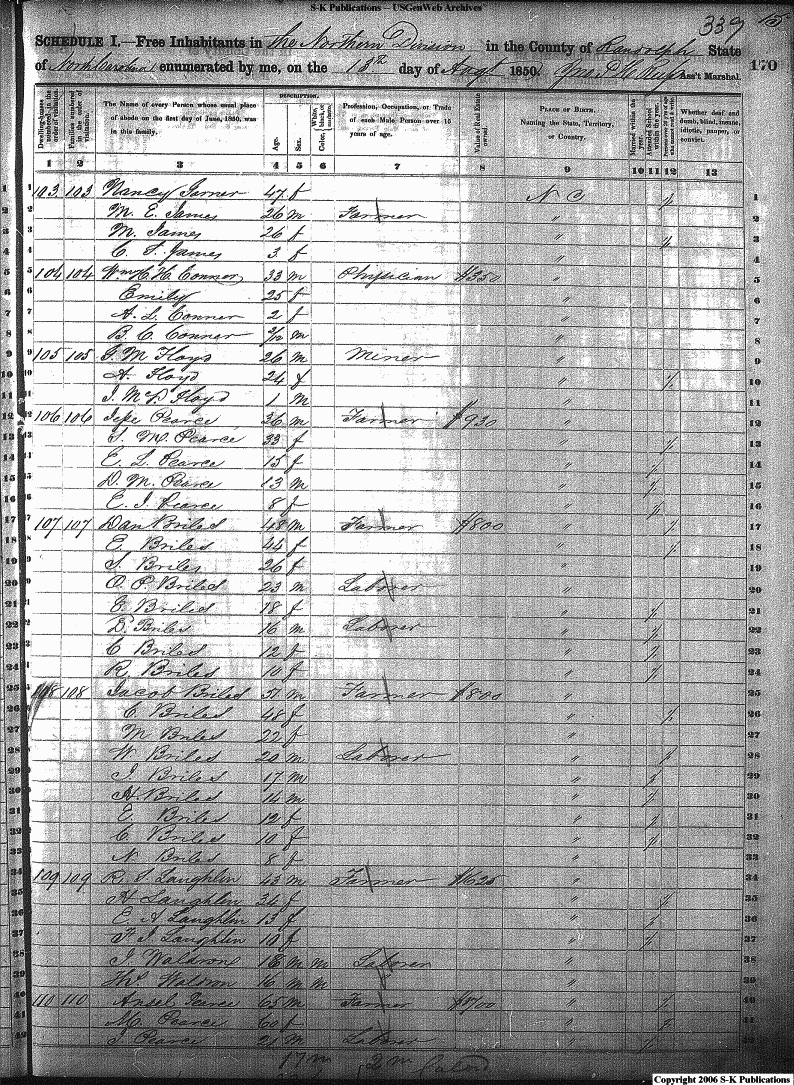 S-K Publications – USGenWeb Archives
339
SCHEDULE I.—Free Inhabitants in The Northern Division in the County of Randolph State
of North Carolina enumerated by me, on the 13th day of Augt 1850. Ass't Marshal. 170
Dwelling-houses numbered, in the order of visitation.
Families numbered in the order of visitation.
The Name of every Person whose usual place of abode on the first day of June, 1850, was in this family.
DESCRIPTION.
Age.
Sex.
Color, White, black, or mulatto.
Profession, Occupation, or Trade of each Male Person over 15 years of age.
Value of Real Estate owned
PLACE OF BIRTH. Naming the State, Territory, or Country.
Married within the year.
Attended School within the year.
Persons over 20 years of age who cannot read & write.
Whether deaf and dumb, blind, insane, idiotic, pauper, or convict.
1 2 3 4 5 6 7 8 9 10 11 12 13
1 103 103 Nancy 47 f N C / 1
2 M. E. James 26 m Farmer " 2
3 M. James 26 f " / 3
4 C. S. James 3 f " 4
5 104 104 Wm H. H. Conner 33 m Physician $350 " 5
6 Emily 25 f " 6
7 A. L. Conner 2 f " 7
8 B. C. Conner 2/12 m " 8
9 105 105 C. M. Floyd 26 m Miner " 9
10 A. Floyd 24 f " / 10
11 J. M. D. Floyd 1 m " 11
12 106 106 Pearce 36 m Farmer $930 " 12
13 S. M. Pearce 33 f " / 13
14 E. L. Pearce 15 f " / 14
15 D. M. Pearce 13 m " / 15
16 E. J. Pearce 8 f " / 16
17 107 107 Dan Briles 48 m Farmer $800 " / 17
18 E. Briles 44 f " / 18
19 S. Briles 26 f " 19
20 O. P. Briles 23 m Laborer " 20
21 E. Briles 18 f " / 21
22 D. Briles 16 m Laborer " / 22
23 C. Briles 12 f " / 23
24 R. Briles 10 f " / 24
25 108 108 Jacob Briles 51 m Farmer $800 " 25
26 C. Briles 48 f " / 26
27 M. Briles 22 f " 27
28 W. Briles 20 m Laborer " / 28
29 J. Briles 17 m " / 29
30 H. Briles 14 m " / 30
31 E. Briles 12 f " / 31
32 C. Briles 10 f " / 32
33 N. Briles 8 f " 33
34 109 109 R. S. Laughlin 43 m Farmer $625 " 34
35 H. Laughlin 34 f " / 35
36 E. A. Laughlin 13 f " / 36
37 F. J. Laughlin 10 f " / 37
38 J. Waldron 18 m m Laborer " 38
39 Thos Waldron 16 m m " 39
40 110 110 Ansel Pearce 65 m Farmer " / 40
41 M. Pearce 60 f " / 41
42 J. Pearce 21 m Laborer " / 42
17 m 2 m
Copyright 2006 S-K Publications